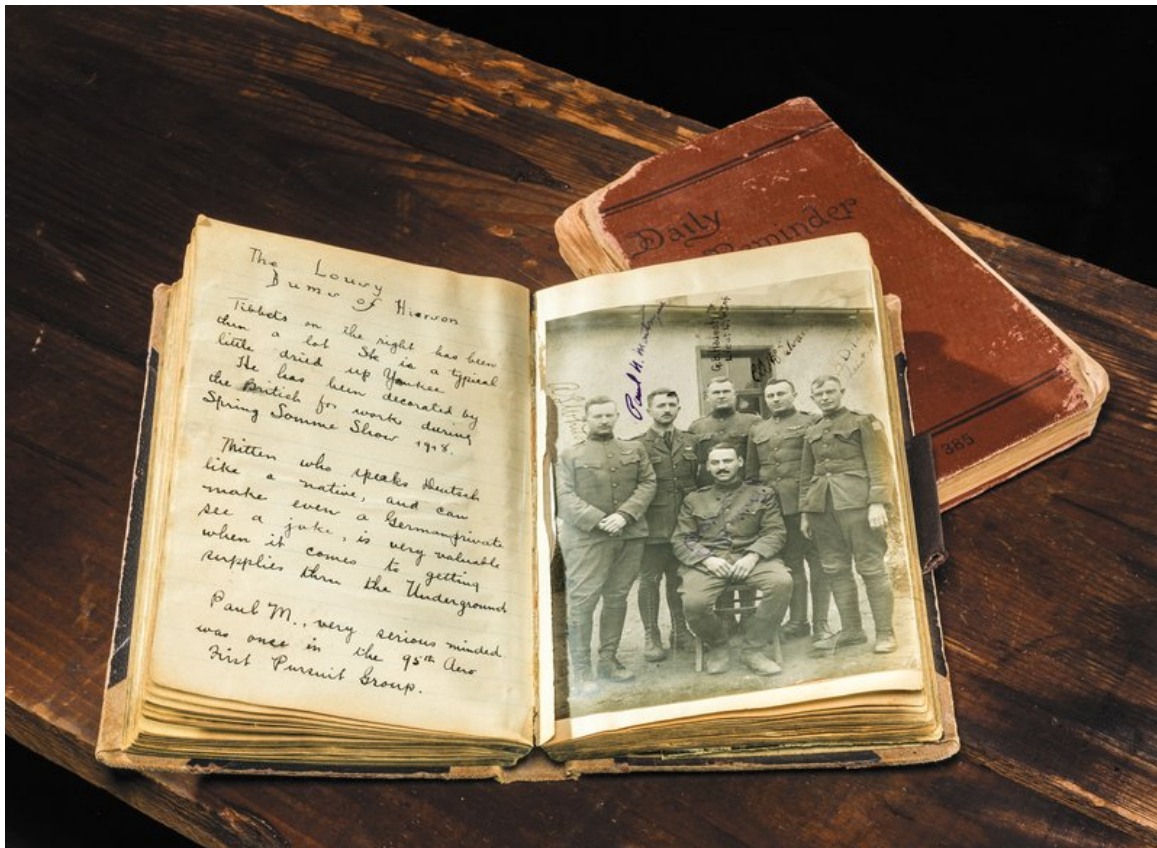 The Lousy
Bums of Hiervon
Tibbets on the right has been
thru a lot She is a typical
little dried up Yankee
He has been decorated by
the British for work during
Spring Somme Show 1918.
Mitten who speaks Deutsch
like a native, and can
make even a German private
see a joke, is very valuable
when it comes to getting
supplies thru the Underground
Paul M., very serious minded
was once in the 95th Aero
First Pursuit Group.
Paul H. M
Daily
Reminder
385